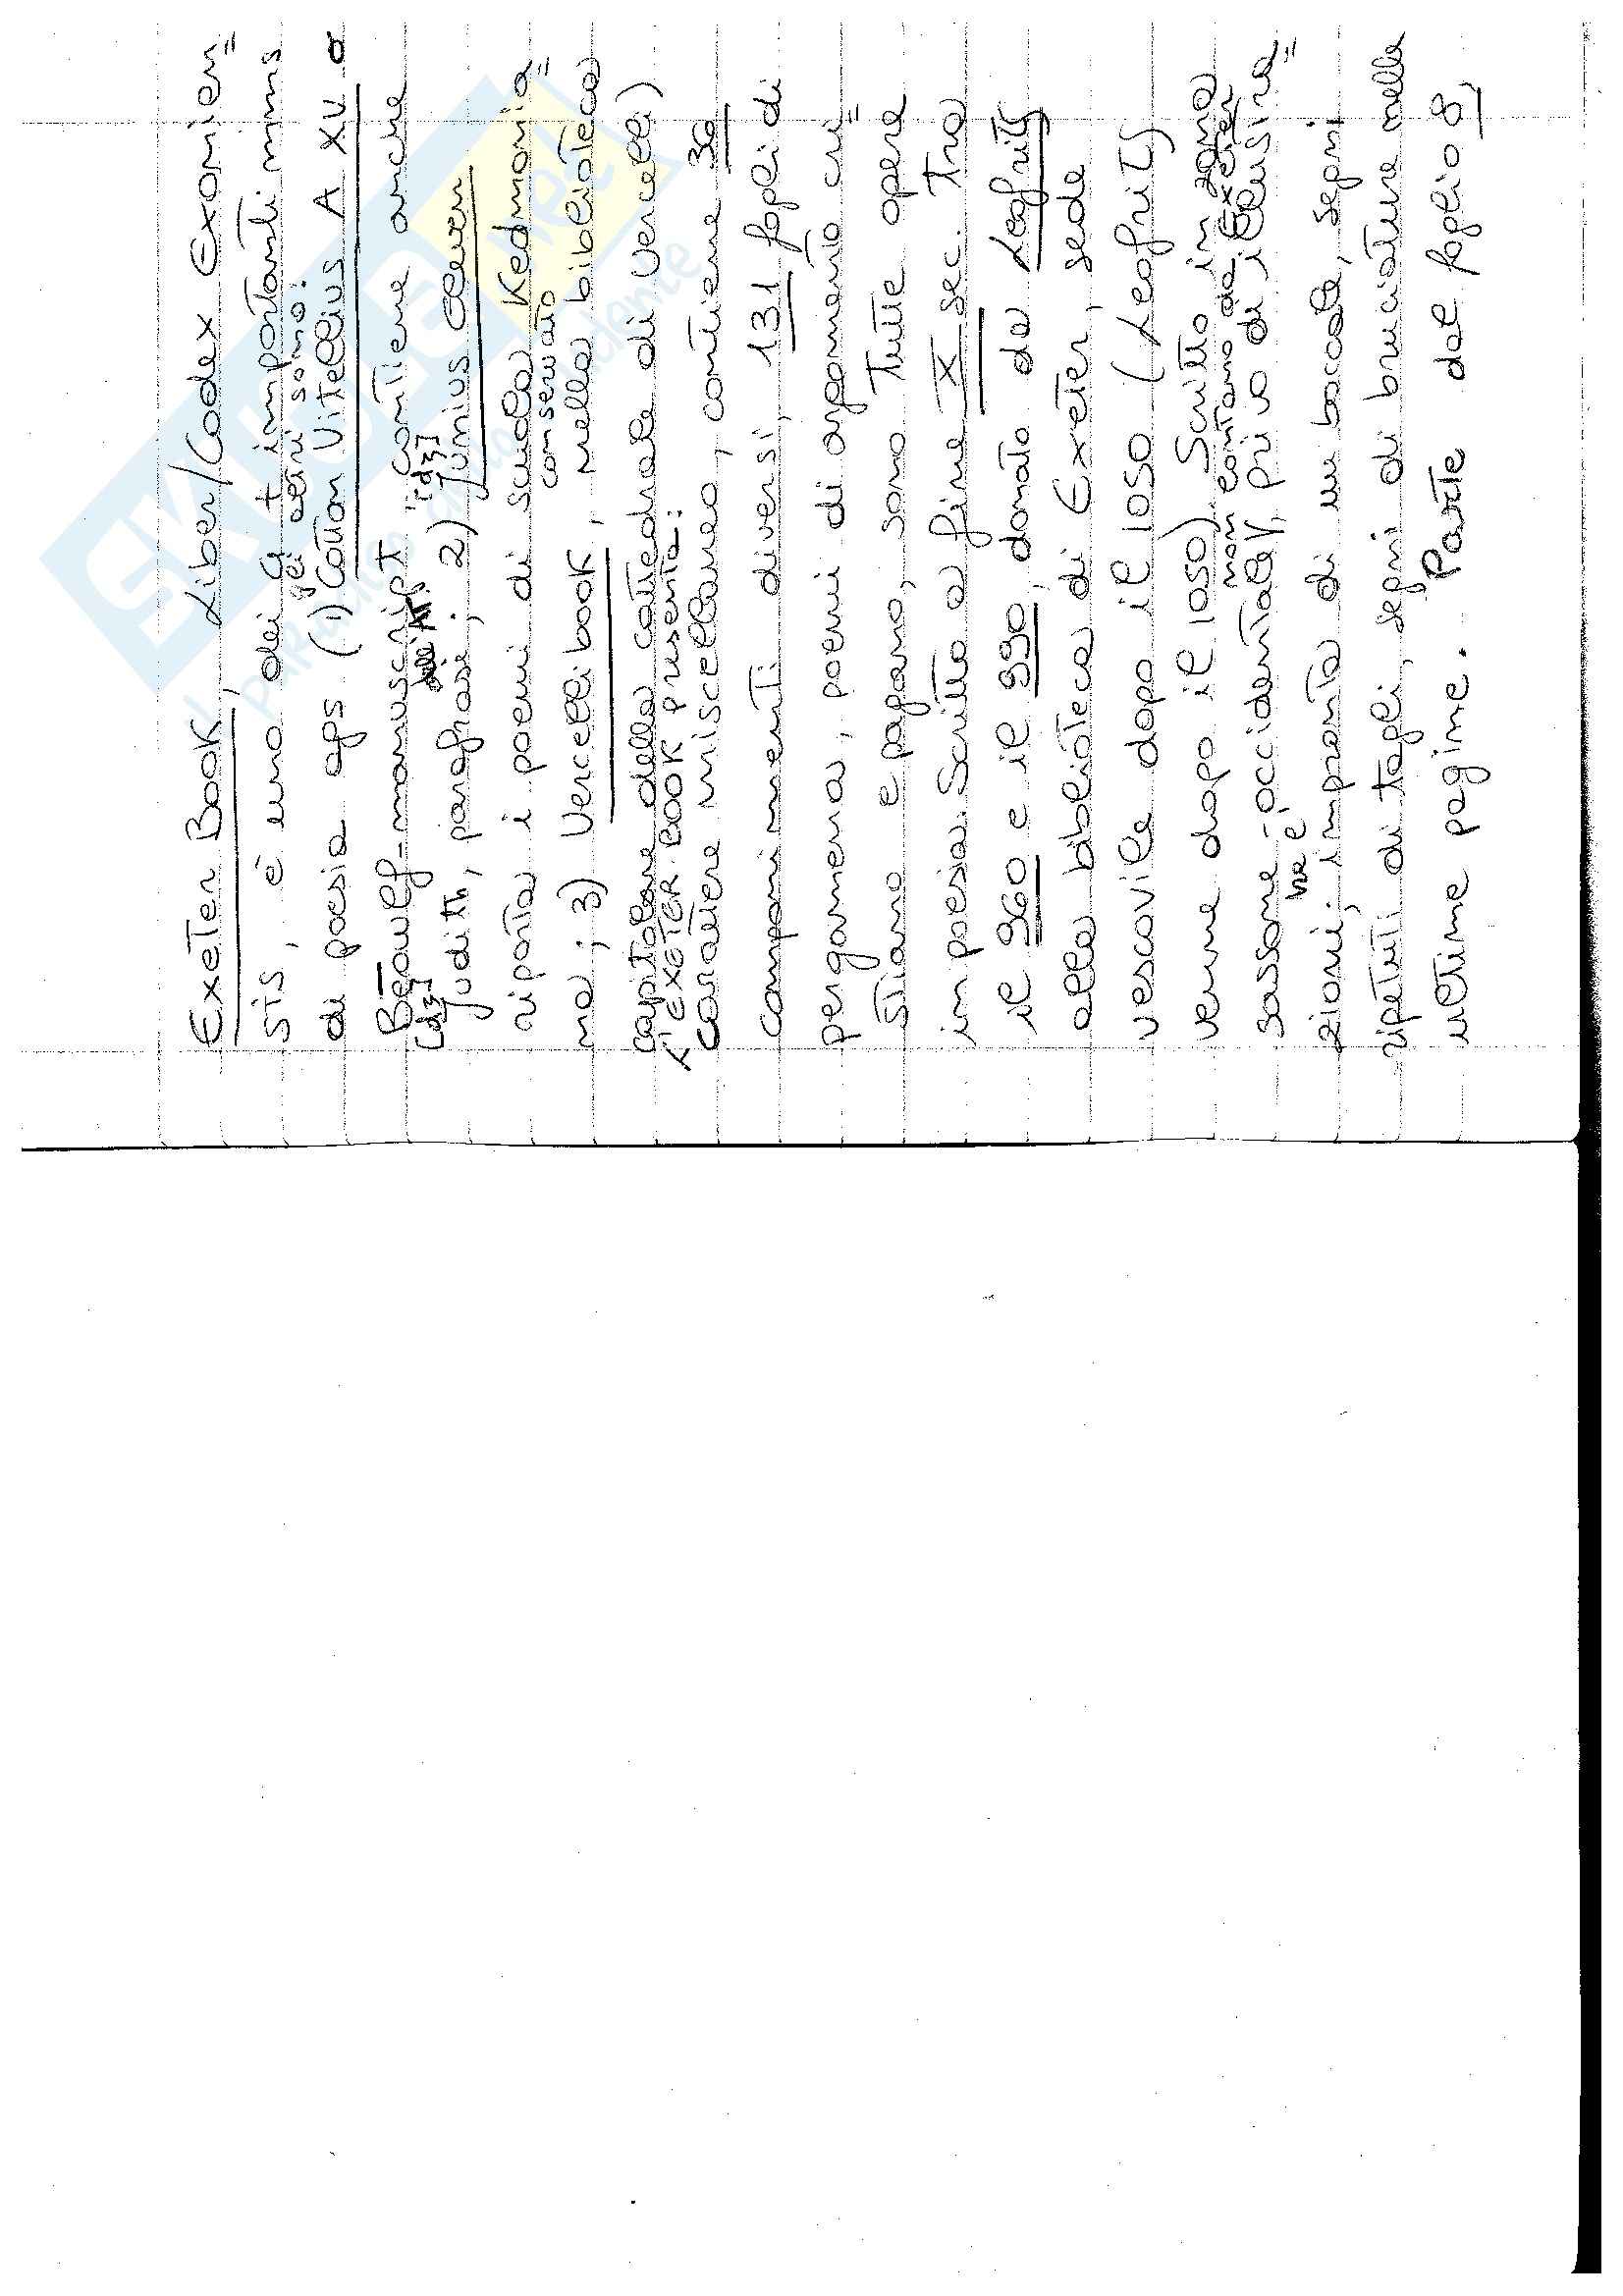 Exeter Book, Liber/Codex Exonien=
sis, è uno dei 4 importanti mms
gli altri sono:
di poesia ags (1) Cotton Vitellius A XV o
Bēowulf-manuscript contiene anche
[dʒ] dell'AT [dʒ]
Judith, parafrasi; 2) Junius eleven
riporta i poemi di scuola Kedmonia=
conservato
na; 3) Vercelli book, nella biblioteca
capitolare della cattedrale di Vercelli)
L'EXETER BOOK presenta:
carattere miscellaneo, contiene 36
componimenti diversi, 131 fogli di
pergamena, poemi di argomento cri=
stiano e pagano, sono tutte opere
in poesia. Scritto a fine X sec. tra
il 960 e il 990, donato da Leofrits
alla biblioteca di Exeter, sede
vescovile dopo il 1050 (Leofrits
venne dopo il 1050). Scritto in zona
non lontano da Exeter
sassone-occidentale, privo di illustra=
ve è
zioni, impronta di un boccale, segni
ripetuti di tagli, segni di bruciature nelle
ultime pagine. Parte dal foglio 8,
SKUOLA.net